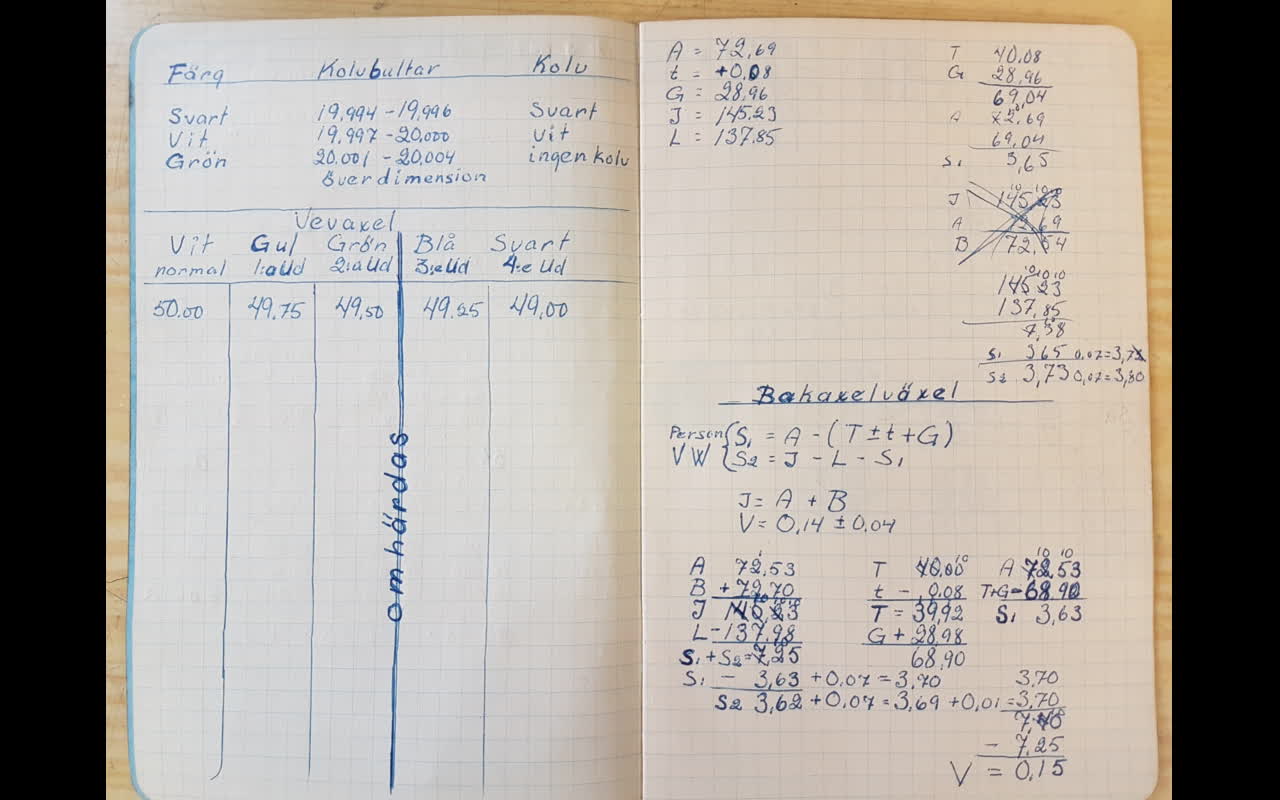 Färg Kolvbultar Kolv
Svart 19,994 - 19,996 Svart
Vit 19,997 - 20.000 Vit
Grön 20.001 - 20.004 ingen kolv
överdimension
Vevaxel
Vit Gul Grön Blå Svart
normal 1:a Ud 2:a Ud 3:e Ud 4:e Ud
50.00 49,75 49,50 49,25 49,00
omhärdas
A = 72,69
t = +0,08
G = 28,96
J = 145,23
L = 137,85
T 40,08
G 28,96
69,04
A 72,69
69,04
S1 3,65
J 145,23
A
B 72,54
145,23
137,85
7,38
S1 365 0,07=3,7
S2 3,73 0,07=3,80
Bakaxelväxel
Person S1 = A - (T ± t + G)
VW S2 = J - L - S1
J = A + B
V = 0,14 ± 0,04
A 72,53 T 40,00 A 72,53
B + 72,70 t - 0,08 T+G - 68,90
J 145,23 T = 39,92 S1 3,63
L - 137,98 G + 28,98
S1 + S2 = 7,25 68,90
S1 - 3,63 + 0,07 = 3,70 3,70
S2 3,62 + 0,07 = 3,69 + 0,01 = 3,70
7,40
- 7,25
V = 0,15